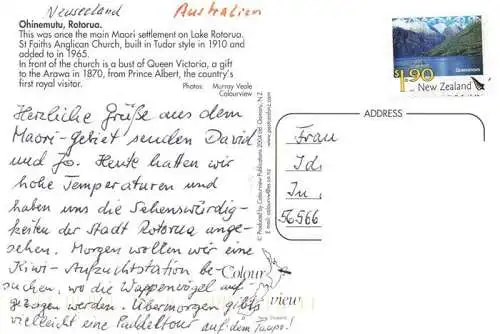 Neuseeland Australien
Ohinemutu, Rotorua.
This was once the main Maori settlement on Lake Rotorua.
St Faiths Anglican Church, built in Tudor style in 1910 and
added to in 1965.
In front of the church is a bust of Queen Victoria, a gift
to the Arawa in 1870, from Prince Albert, the country's
first royal visitor.
Photos: Murray Veale
Colourview
Herzliche Grüße aus dem
Maori-gebiet senden David
und Jo. Heute hatten wir
hohe Temperaturen und
haben uns die Sehenswürdig-
keiten der Stadt Rotorua ange-
sehen. Morgen wollen wir eine
Kiwi-Aufzuchtstation be-
suchen, wo die Wappenvögel auf-
gezogen werden. Übermorgen gibts
vielleicht eine Paddeltour auf dem Taupo!
© Produced by Colourview Publications 2004 Ltd N.Z.
Colour
view
$1.90
Queenstown
New Zealand
ADDRESS
Frau
In
56566